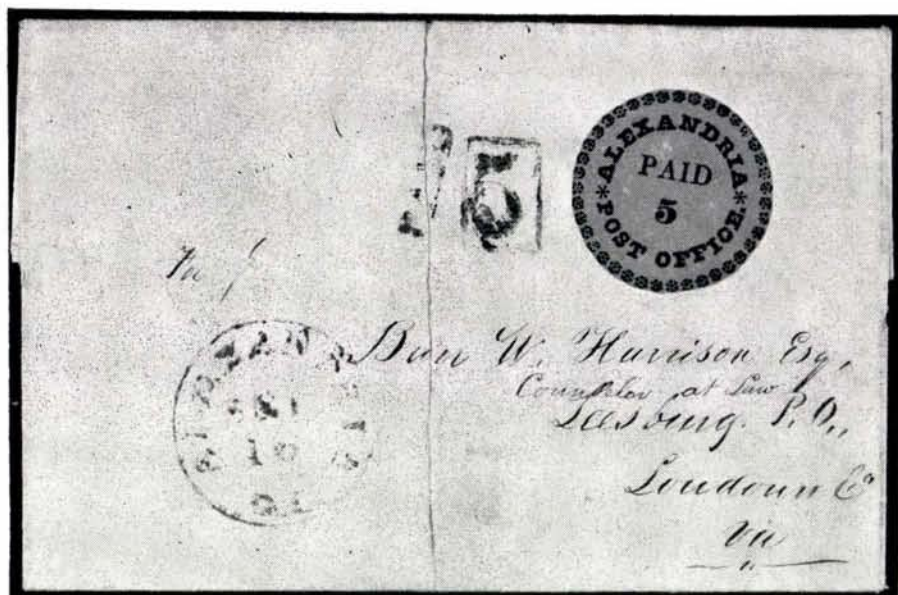 ALEXANDRIA
PAID
5
POST OFFICE.
PAID
5
Burr W. Harrison Esq,
Counselor at Law
Leesburg. P. O.,
Loudoun Co
Va
ALEXANDRIA
10